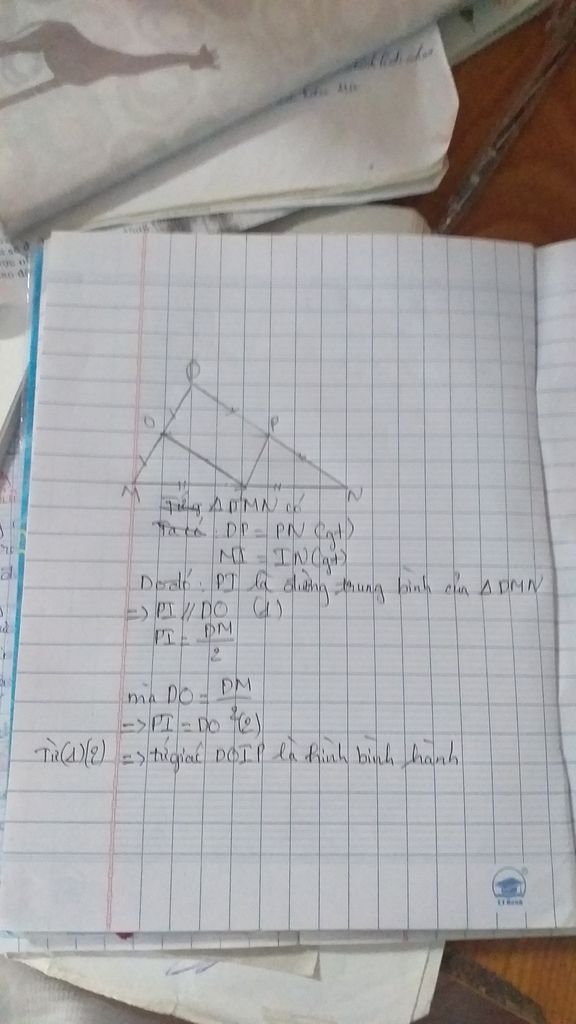 D
O
P
M
N
Trong ΔDMN có
Ta có: DP = PN (gt)
MI = IN (gt)
Do đó: PI là đường trung bình của ΔDMN
=> PI // DO (1)
PI = DM/2
mà DO = DM/2
=> PI = DO (2)
Từ (1)(2) => tứ giác DOIP là hình bình hành